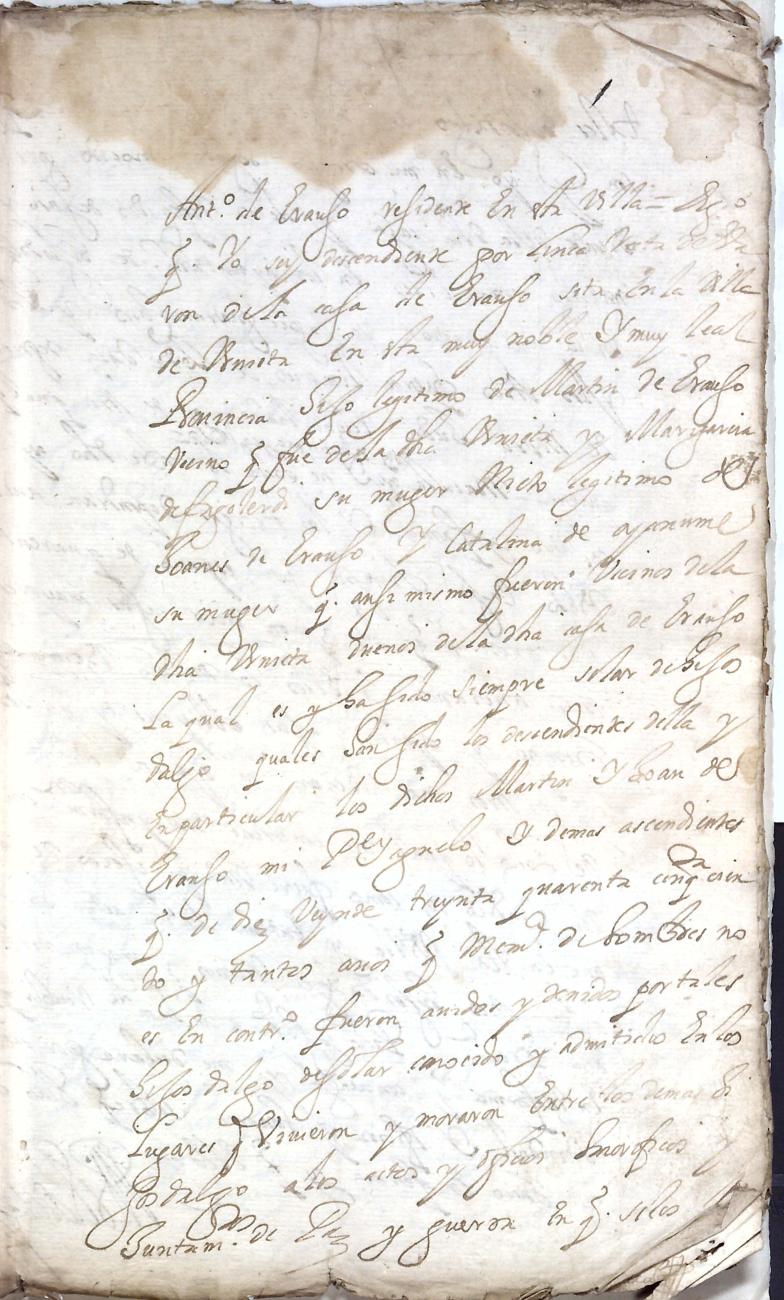 Ant.º de Erauso residente En sta Villa = Digo
q. Yo soy descendiente por linea Recta de Ba
ron de la casa de Erauso sita En la Villa
de Urnieta En sta muy noble Y muy leal
Provincia hijo legitimo de Martin de Erauso
Vecino q fue de la dha Urnieta y Margarita
su muger Nieto legitimo de
Joanes de Erauso Y Catalina de ayerdi
su muger q. ansi mismo fueron Vecinos de la
dha Urnieta duenos de la dha casa de Erauso
La qual es y ha sido siempre solar de hijos
dalgo quales han sido los descendientes della y
En particular los dichos Martin Y Joan de
Erauso mi P.e y aguelo Y demas ascendientes
q. de diez Veynte treynta quarenta cinq.ta cien
to y tantos anos q Mem.ª de hombres no
es En contr.º fueron auidos y tenidos por tales
hijos dalgo de solar conocido y admitidos En los
Lugares q Vivieron y moraron Entre los demas hi
jos dalgo a los actos y oficios honorificos y
Juntam.tos de Paz y guerra En q. solos